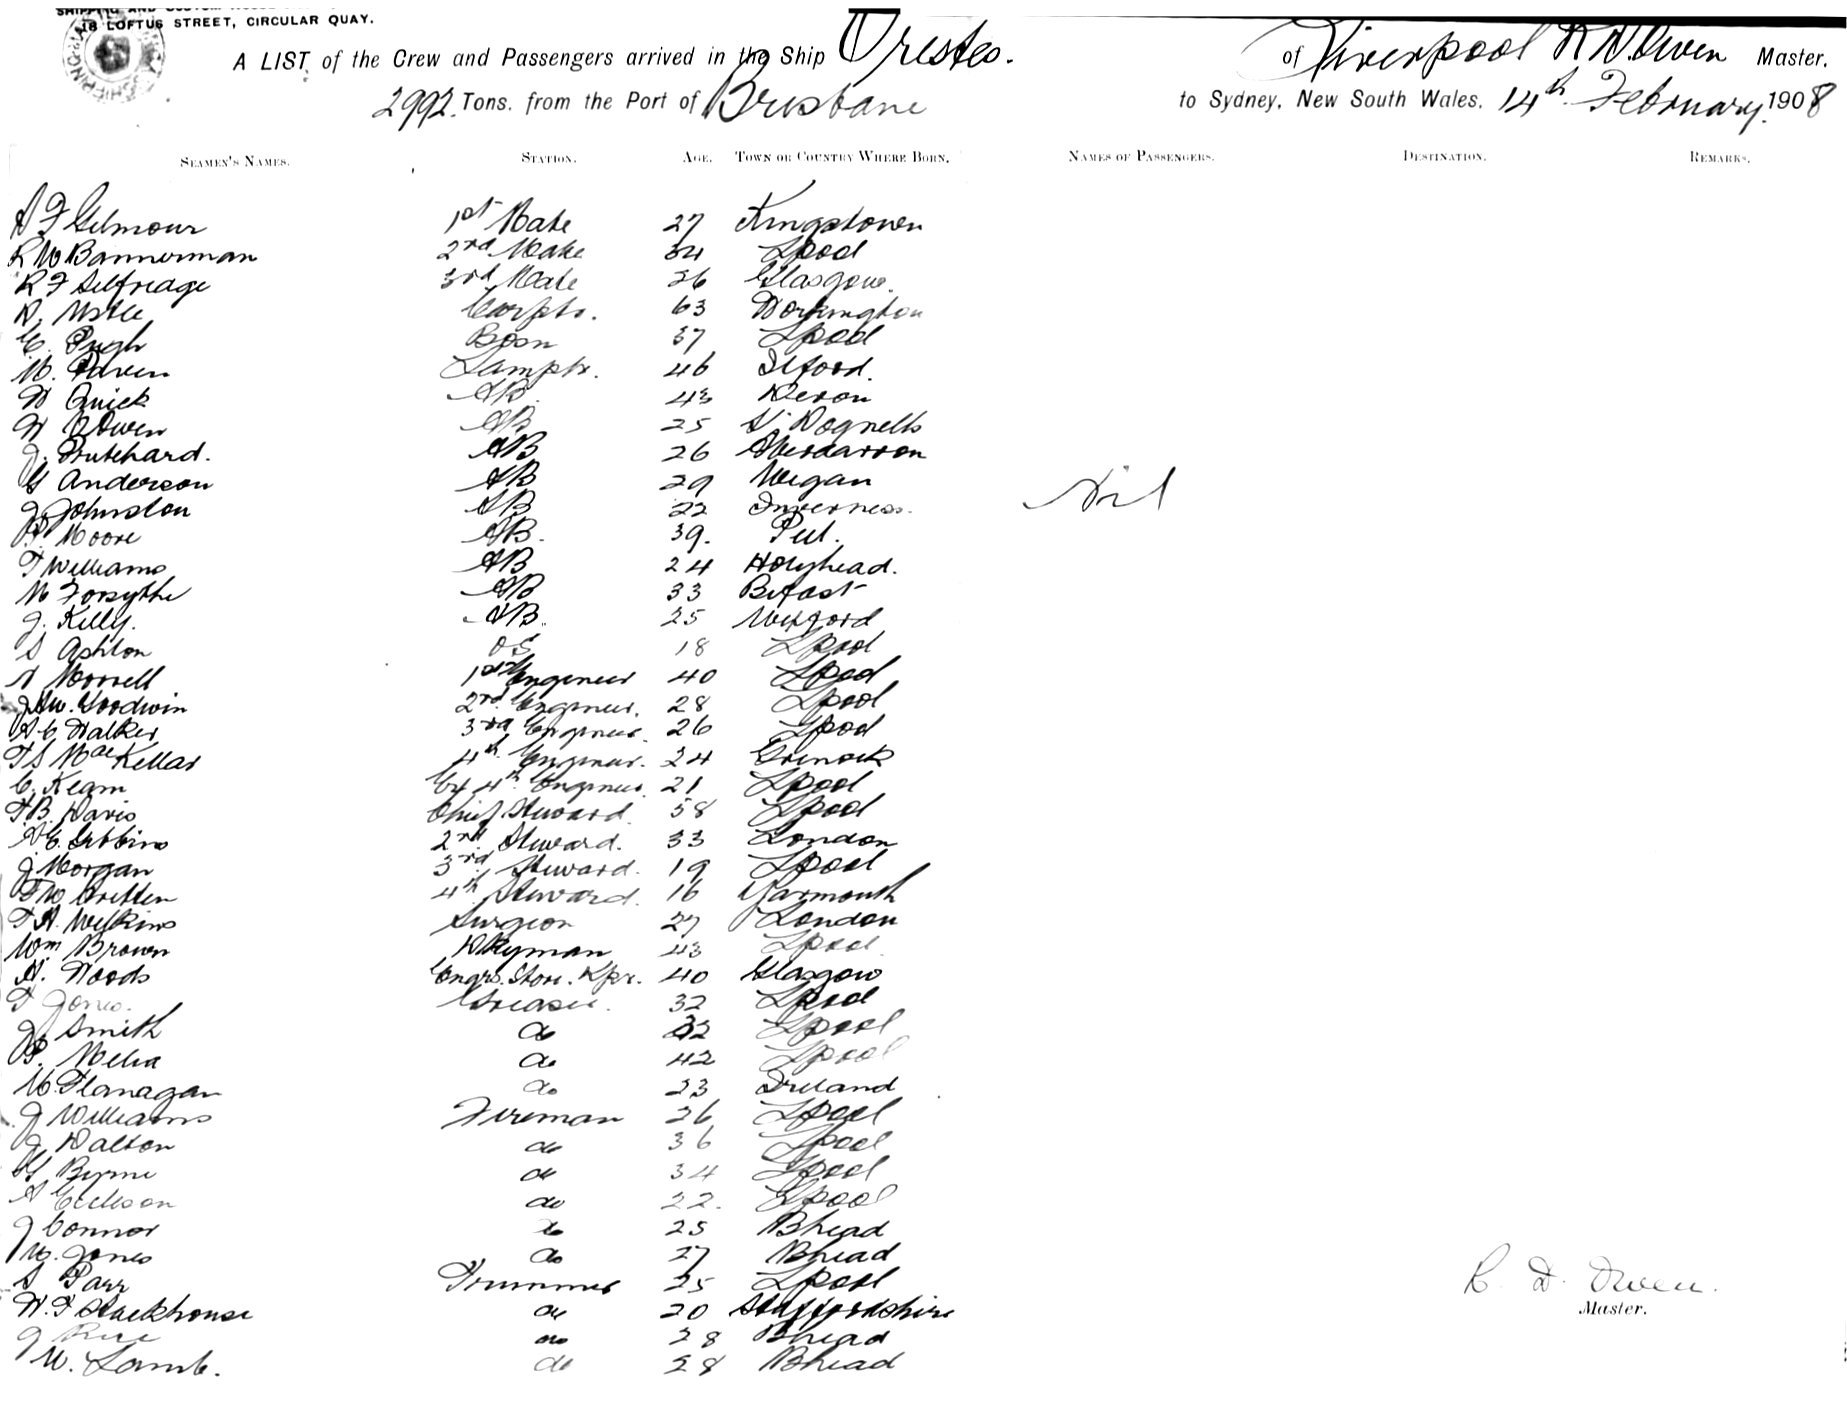 18 LOFTUS STREET, CIRCULAR QUAY.
A LIST of the Crew and Passengers arrived in the Ship Orestes. of Liverpool R D. Owen Master.
2992. Tons. from the Port of Brisbane to Sydney, New South Wales. 14th February 1908
SEAMEN'S NAMES. STATION. AGE. TOWN OR COUNTRY WHERE BORN. NAMES OF PASSENGERS. DESTINATION. REMARKS.
A F Gilmour 1st Mate 27 Kingstown
R W Bannerman 2nd Mate 34 Lpool
R F Selfridge 3rd Mate 26 Glasgow.
Carptr. 63 Workington
C. Pugh Bosn 37 Lpool
W. Lamptr. 46 Ilford.
W Quick AB 43 Devon
W Owen AB 25 St Dogmells
J. Pritchard. AB 26 Aberdarron
G Anderson AB 29 Wigan
J Johnston AB 22 Inverness.
Nil
P. Moore AB. 39. Peel.
T Williams AB 24 Holyhead.
W Forsythe AB 33 Befast
J. Kelly. AB. 25 Wexford
S Ashton OS 18 Lpool
A Morrell 1st Engineer 40 Lpool
J W. Goodwin 2nd Engineer. 28 Lpool
A C Walker 3rd Engineer 26 Lpool
T S MacKellar 4th Engineer. 24 Greenock
C. Keam Ex 4th Engineer 21 Lpool
T B. Davis Chief Steward 58 Lpool
A. C. Gibbins 2nd Steward. 33 London
J Morgan 3rd Steward. 19 Lpool
F W Britten 4th Steward. 16 Yarmouth
T A. Wilkins Surgeon 27 London
Wm Brown Dkyman 43 Lpool
A. Woods Engrs. Store. Kpr. 40 Glasgow
T Jones. Greaser. 32 Lpool
J Smith do 32 Lpool
P. Melia do 42 Lpool
W. Flanagan do 23 Ireland
J Williams Fireman 26 Lpool
J Dalton do 36 Lpool
G Byrne do 34 Lpool
A do 22. Lpool
J Connor do 25 Bhead
W. Jones do 27 Bhead
S Parr Trimmer 25 Lpool
R. D. Owen.
W. F Stackhouse do 20 Staffordshire
Master.
J Rice do 28 Bhead
W. Lamb. do 28 Bhead